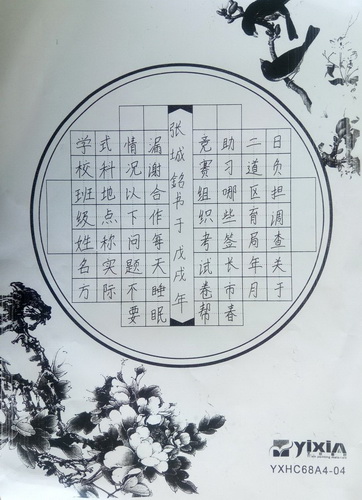 日负担调查关于
二道区育局年月
助习哪些签长市春
竞赛组织考试卷帮
张城铭书于戊戌年
漏谢合作每天睡眠
情况以下问题不要
式科地点称实际
学校班级姓名方
yixin
YXHC68A4-04